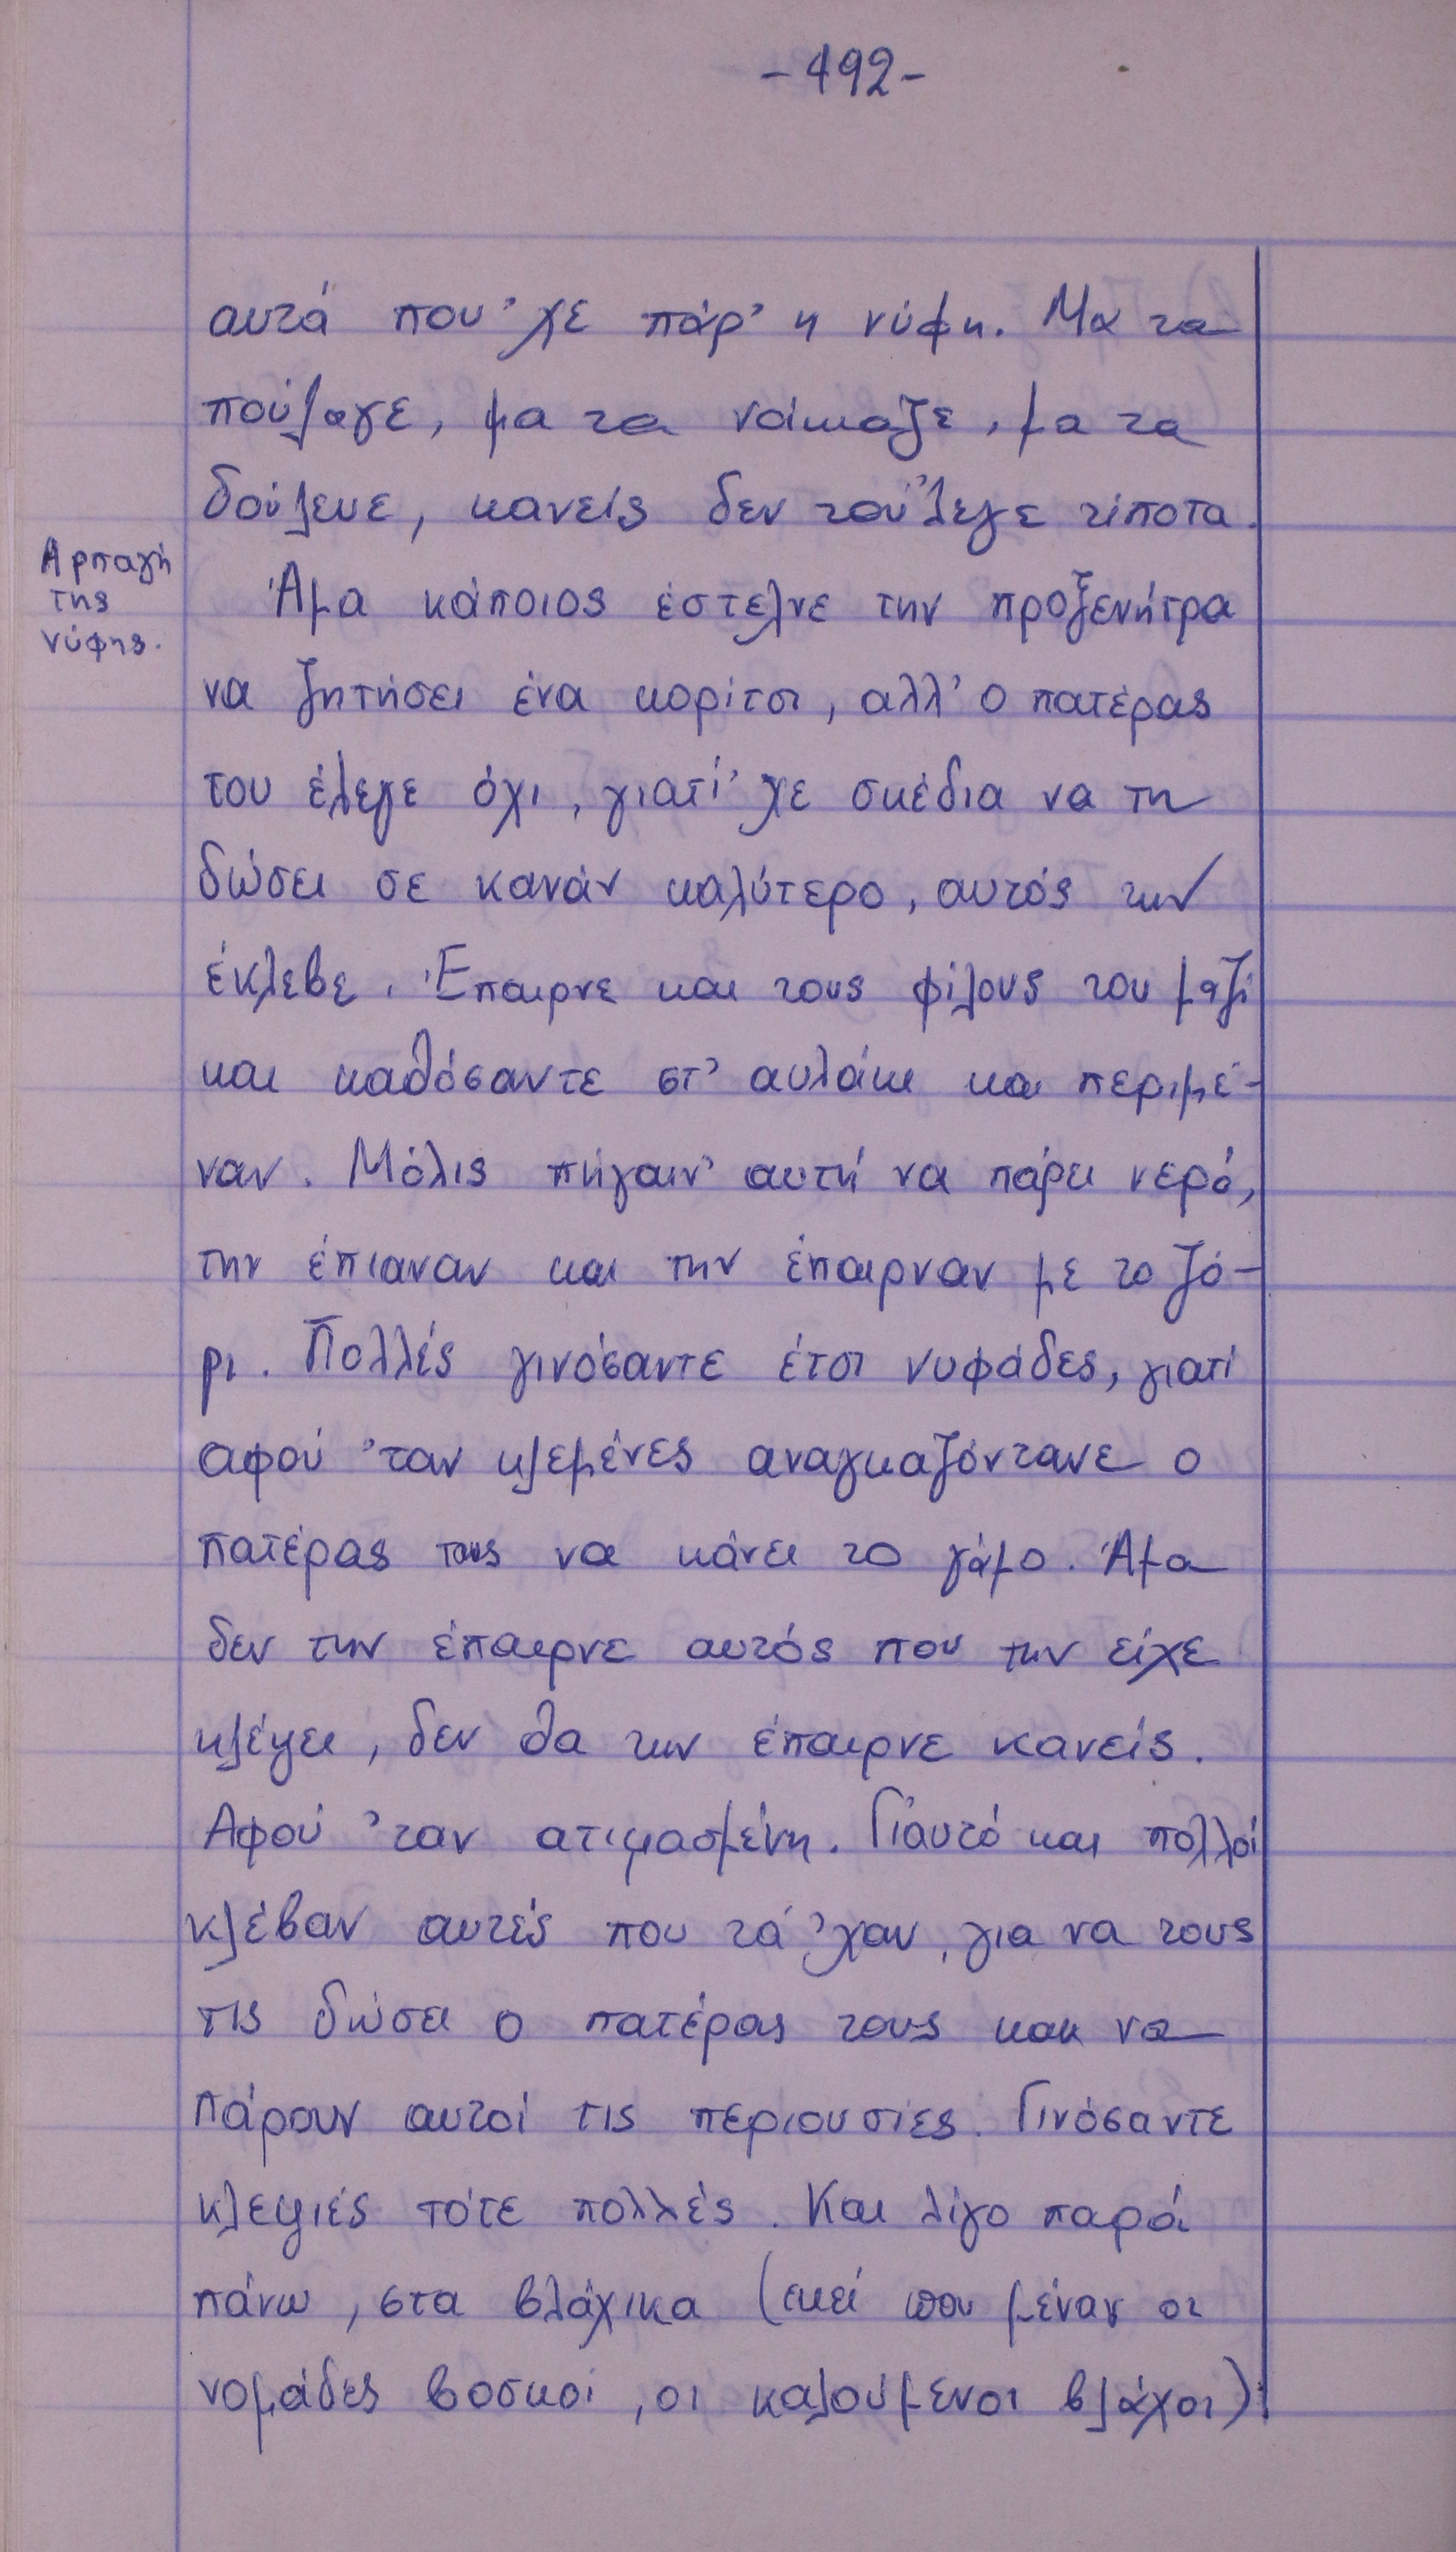 -492-
αυτά που 'χε πάρ' η νύφη. Μα τα
πούλαγε, μα τα νοίκιαζε, μα τα
δούλευε, κανείς δεν τού 'λεγε τίποτα.
Αρπαγή
της
νύφης.
Άμα κάποιος έστελνε την προξενήτρα
να ζητήσει ένα κορίτσι, αλλ' ο πατέρας
του έλεγε όχι, γιατί 'χε σκέδια να τη
δώσει σε κανάν καλύτερο, αυτός την
έκλεβε. Έπαιρνε και τους φίλους του μαζί
και καθόσαντε στ' αυλάκι και περιμέ-
ναν. Μόλις πήγαιν' αυτή να πάρει νερό,
την έπιαναν και την έπαιρναν με το ζό-
ρι. Πολλές γινόσαντε έτσι νυφάδες, γιατί
αφού 'ταν κλεμένες αναγκαζόντανε ο
πατέρας τους να κάνει το γάμο. Άμα
δεν την έπαιρνε αυτός που την είχε
κλέψει, δεν θα την έπαιρνε κανείς.
Αφού 'ταν ατιμασμένη. Γι'αυτό και πολλοί
κλέβαν αυτές που τά 'χαν, για να τους
τις δώσει ο πατέρας τους και να
πάρουν αυτοί τις περιουσίες. Γινόσαντε
κλεψιές τότε πολλές. Και λίγο παρά
πάνω, στα βλάχικα (εκεί που μέναν οι
νομάδες βοσκοί, οι καλούμενοι βλάχοι)